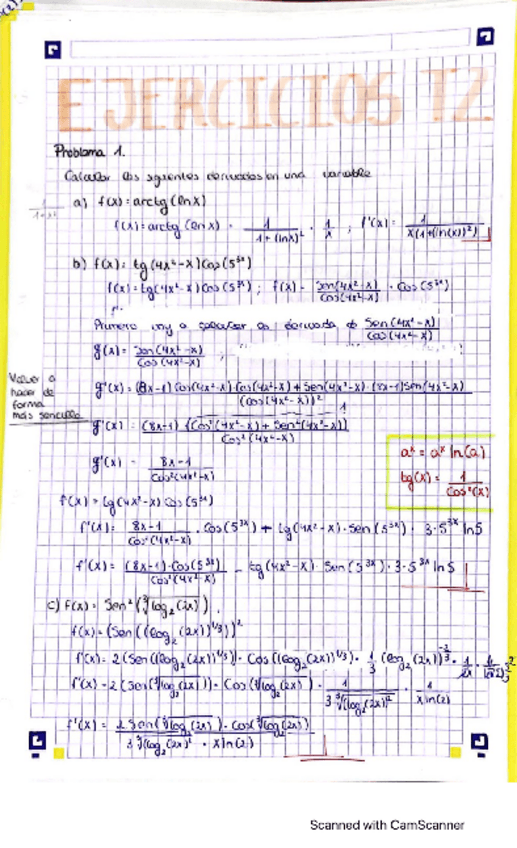 EJERCICIOS T2
Problema 1.
Calcular las siguientes derivadas en una variable
a) f(x) = arctg(lnx)
f(x) = arctg(lnx) · 1/(1+(lnx)²) · 1/x ; f'(x) = 1/(x(1+(ln(x))²))
b) f(x) = tg(4x²-x)Cos(5³ˣ)
f(x) = tg(4x²-x)Cos(5³ˣ) ; f(x) = Sen(4x²-x)/Cos(4x²-x) · Cos(5³ˣ)
Primero voy a calcular la derivada de Sen(4x²-x)/Cos(4x²-x)
g(x) = Sen(4x²-x)/Cos(4x²-x) ;
Volver a
hacer de
forma
más sencilla
g'(x) = ((8x-1)Cos(4x²-x)·Cos(4x²-x) + Sen(4x²-x)·(8x-1)Sen(4x²-x))/(Cos(4x²-x))²
1
g'(x) = ((8x-1)(Cos²(4x²-x) + Sen²(4x²-x)))/Cos²(4x²-x)
g'(x) = (8x-1)/Cos²(4x²-x)
aˣ = aˣ ln(a)
tg(x) = 1/Cos²(x)
f(x) = tg(4x²-x)Cos(5³ˣ)
f'(x) = (8x-1)/Cos²(4x²-x) · Cos(5³ˣ) + tg(4x²-x)·Sen(5³ˣ) · 3·5³ˣ ln5
f'(x) = ((8x-1)·Cos(5³ˣ))/Cos²(4x²-x) - tg(4x²-x)·Sen(5³ˣ)·3·5³ˣ ln5
c) f(x) = Sen²(∛log₂(2x))
f(x) = (Sen((log₂(2x))^1/3))²
f'(x) = 2(Sen((log₂(2x))^1/3))·Cos((log₂(2x))^1/3)· 1/3 (log₂(2x))^-2/3 · 1/2x · 1/ln(2) · 2
f'(x) = 2(Sen(∛log₂(2x)))·Cos(∛log₂(2x)) · 1/(3∛(log₂(2x))²) · 1/(x ln(2))
f'(x) = (2Sen(∛log₂(2x))·Cos(∛log₂(2x)))/(3∛(log₂(2x))² · x ln(2))
Scanned with CamScanner